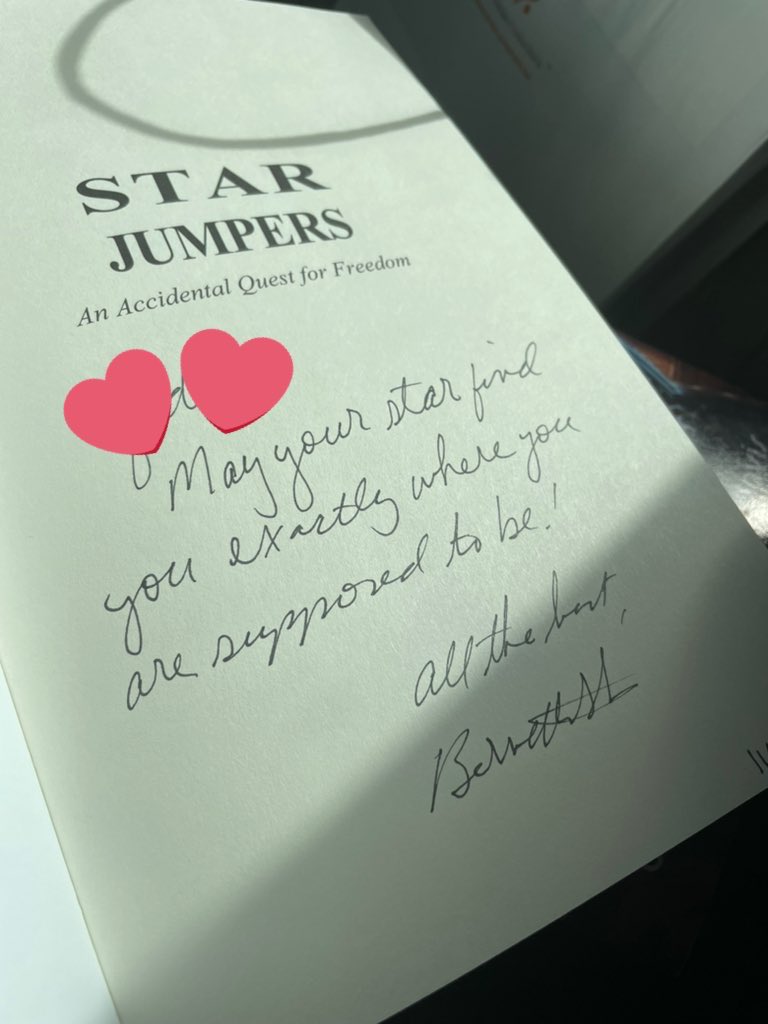 STAR
JUMPERS
An Accidental Quest for Freedom
May your star find
you exactly where you
are supposed to be!
all the best,